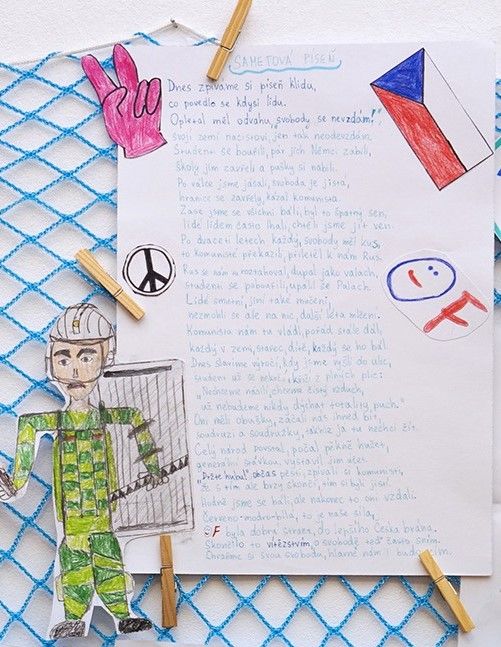 SAMETOVÁ PÍSEŇ
Dnes zpíváme si píseň klidu,
co povedlo se kdysi lidu.
Opletal měl odvahu, svobody se nevzdám!
svoji zemi nacisrovi, "jen tak" neodevzdám.
Studenti se bouřili, pár jich Němci zabili,
školy jim zavřeli a pušky si nabili.
Po válce jsme jásali, svoboda je jistá,
hranice se zavřely, kázal komunista.
Zase jsme se všichni báli, byl to špatný sen,
lidé lidem často lhali, chtěli jsme jít ven.
Po dvaceti letech každý, svobody měl kus,
to komunisté překazili, přiletěl k nám Rus.
Rus se nám tu roztahoval, dupal jako valach,
studenti se pobouřili, upálil se Palach.
Lidé smetní, jimi také mučeni,
nezmohli se ale na nic, další léta mlčení.
Komunista nám tu vládl, pořád stále dál,
každý v zemi, stařec, dítě, každý se ho bál.
Dnes slavíme výročí, kdy jsme vyšli do ulic,
studenti už se nebojí, křičí z plných plic:
„Nechceme násilí, chceme čistý vzduch,
už nebudeme nikdy dýchat totality puch."
Oni měli obušky, začali nás ihned bít,
soudruzi a soudružky, takhle já tu nechci žít.
Celý národ povstal, počal pěkně hučet,
generální stávkou, vystavil jim účet.
Držte huba! občas pěstí, zpívali si komunisti,
že s tím ale brzy skončí, tím si byli jistí.
Hodně jsme se báli, ale nakonec to oni vzdali.
Červeno-modro-bílá, to je naše síla,
OF byla dobrá strana, do lepšího Česka brána.
Skončilo to vítězstvím, o svobodě teď často sním.
Chraňme si svou svobodu, hlavně nám i budoucím.
OF